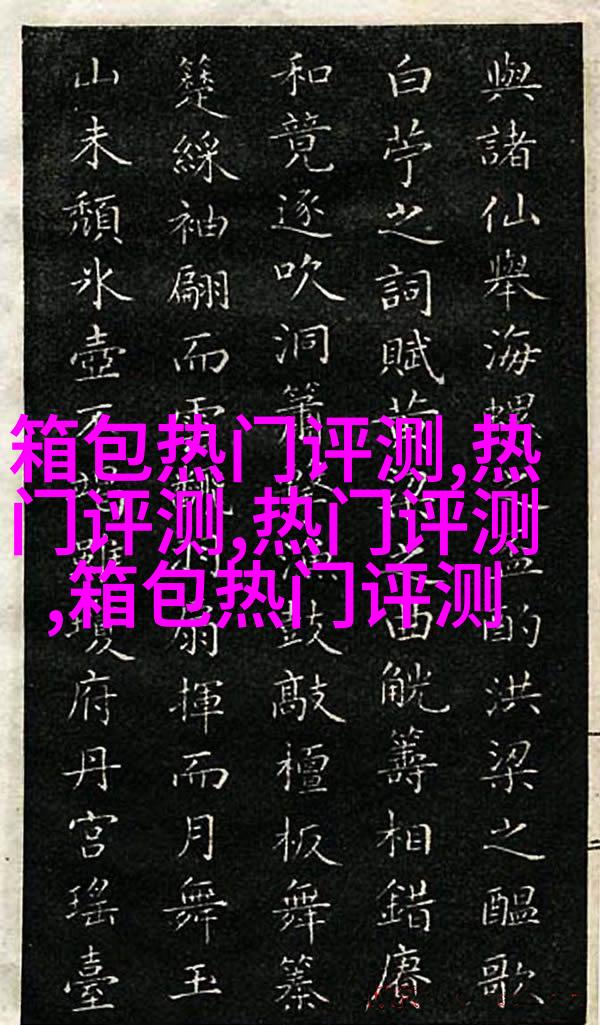 與諸仙舉海螺盞酌洪梁之醖歌
白苧之詞賦曲觥籌相錯賡
和竟逐吹洞簫鼓敲檀板舞纂
綵袖翩而雲扇揮而月舞玉
山未頹氷壺瓊府丹宮瑤臺
箱包热门评测,热
门评测,热门评测
,箱包热门评测